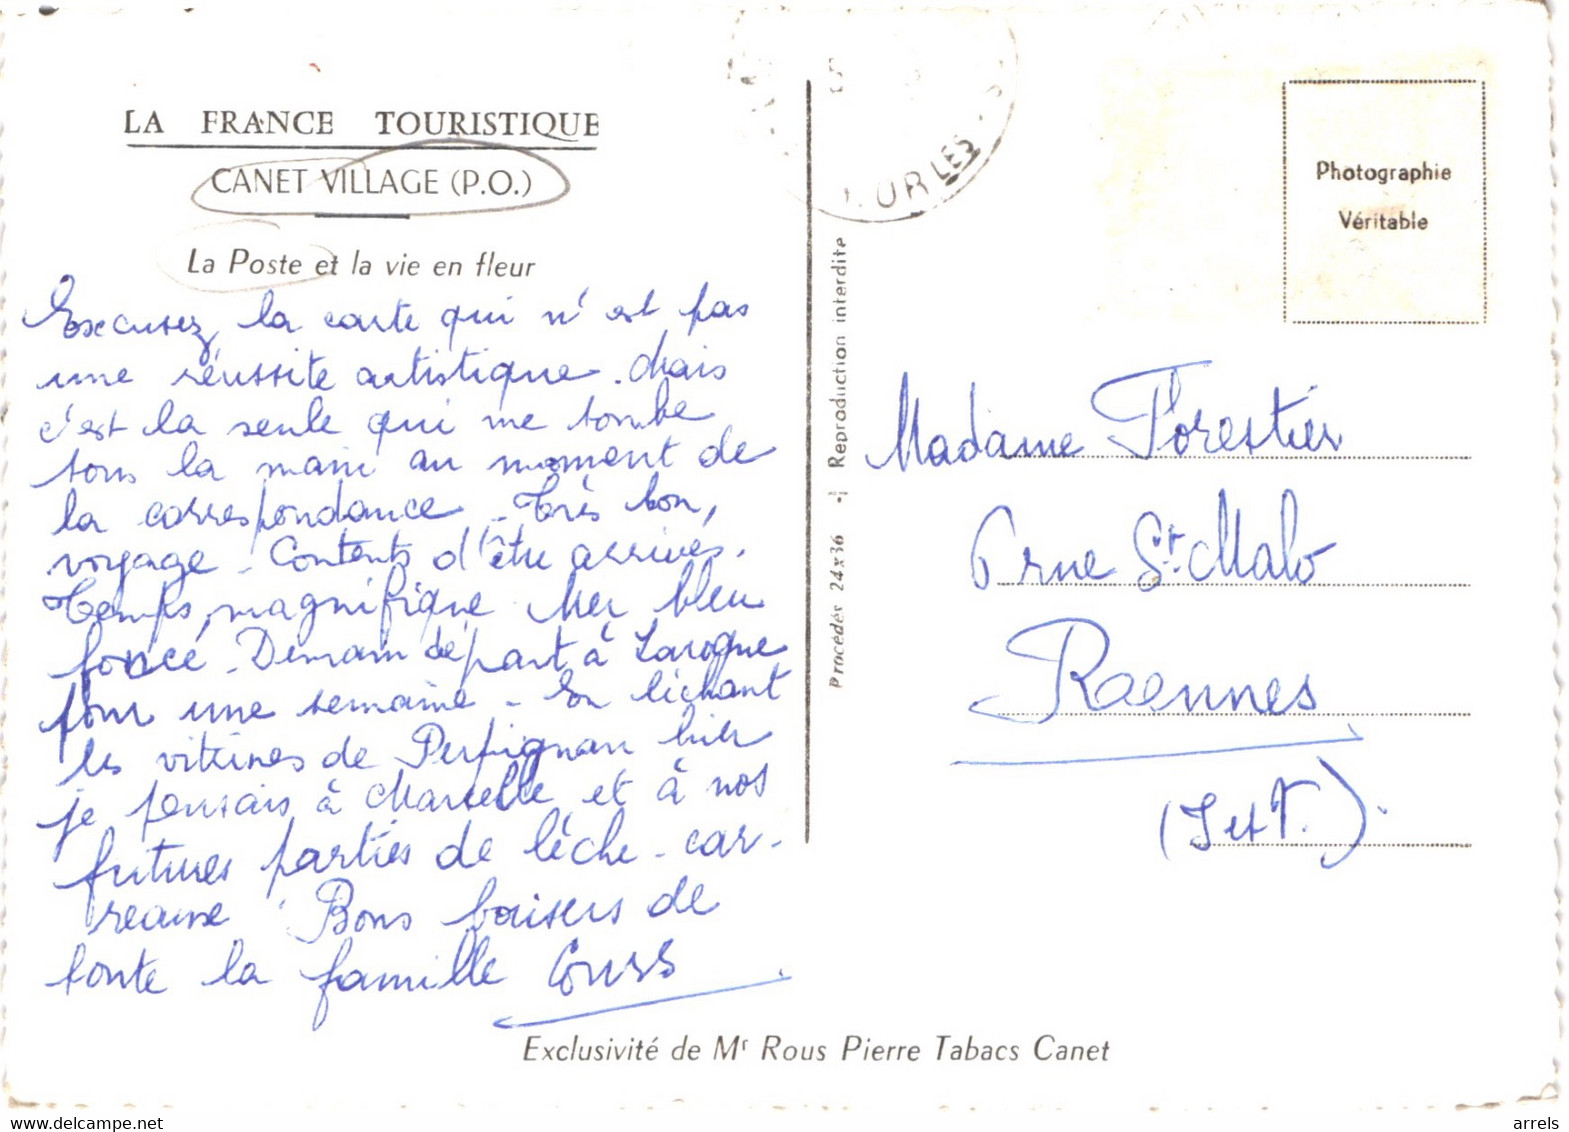 LA FRANCE TOURISTIQUE
CANET VILLAGE (P.O.)
La Poste et la vie en fleur
Excusez la carte qui n'est pas
une réussite artistique. Mais
c'est la seule qui me tombe
sous la main au moment de
la correspondance. Très bon
voyage. Contents d'être arrivés.
Temps magnifique Mer bleu
foncé. Demain départ à Laroque
pour une semaine. En léchant
les vitrines de Perpignan hier
je pensais à Marcelle et à nos
futures parties de lèche-car-
reaux. Bons baisers de
toute la famille
URLES
Photographie
Véritable
Procédés 24x36 - Reproduction interdite
Madame Forestier
6 rue St. Malo
Rennes
(I et V.)
Exclusivité de Mr Rous Pierre Tabacs Canet
arrels